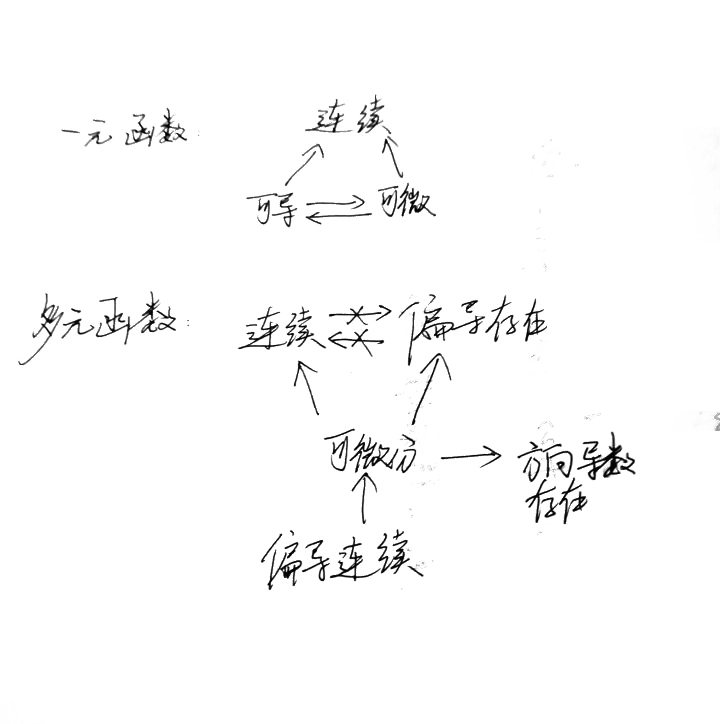 一元函数: 连续
可导 可微
多元函数: 连续 偏导存在
可微分 方向导数
存在
偏导连续